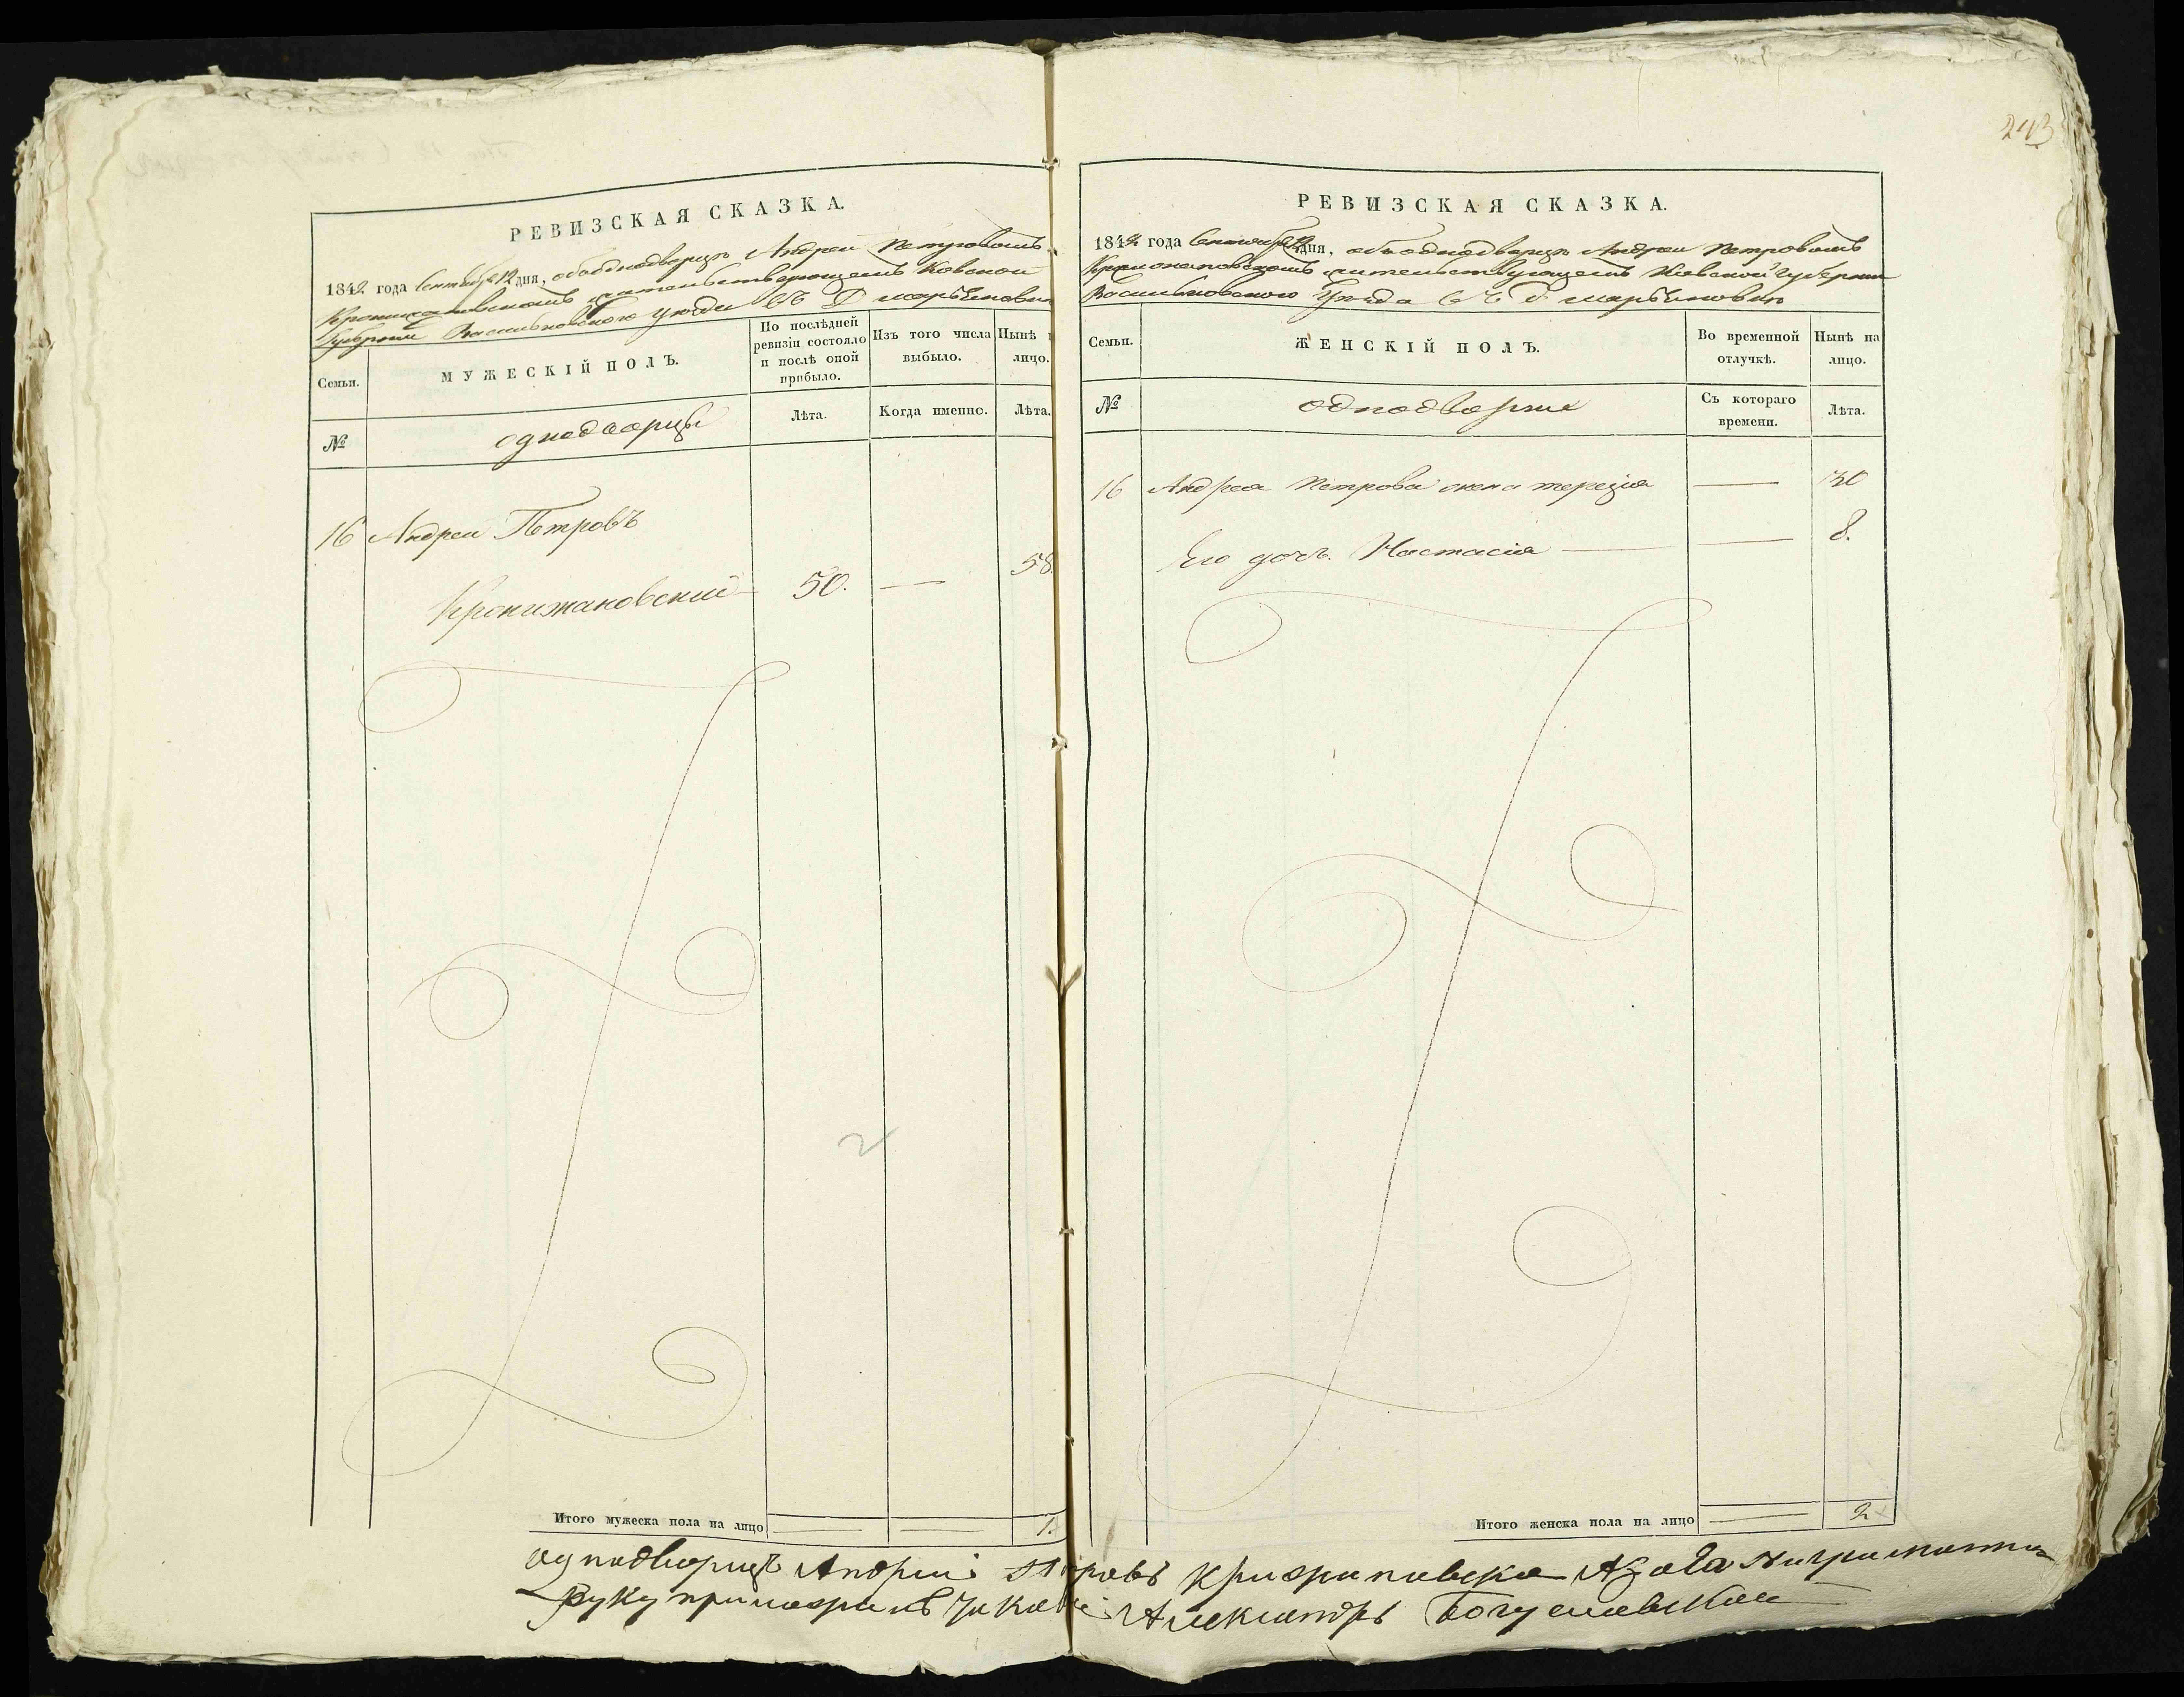 243
РЕВИЗСКАЯ СКАЗКА.
1842 года Сентября 12 дня, объ однодворцѣ Андреи Петровомъ
жительствующемъ Киевской
Губернии Васильковского уезда
Семьи.
МУЖЕСКІЙ ПОЛЪ.
По послѣдней ревизіи состояло и послѣ оной прибыло.
Изъ того числа выбыло.
Нынѣ лицо.
№
однодворцы
Лѣта.
Когда именно.
Лѣта.
16 Андреи Петровъ
Крыжановский 50. — 58
Итого мужеска пола на лицо — — 1.
РЕВИЗСКАЯ СКАЗКА.
1842 года Сентября 12 дня, объ однодворцѣ Андреи Петровомъ
Крыжановскомъ жительствующемъ Киевской Губернии
Васильковского Уезда
Семьи.
ЖЕНСКІЙ ПОЛЪ.
Во временной отлучкѣ.
Нынѣ на лицо.
№
однодворки
Съ котораго времени.
Лѣта.
16 Андрея Петрова жена терезия — 30
Его дочь Настасия — — 8.
Итого женска пола на лицо — 2
однодворецъ Андрий Петровъ
руку приложилъ Александръ Богуславский